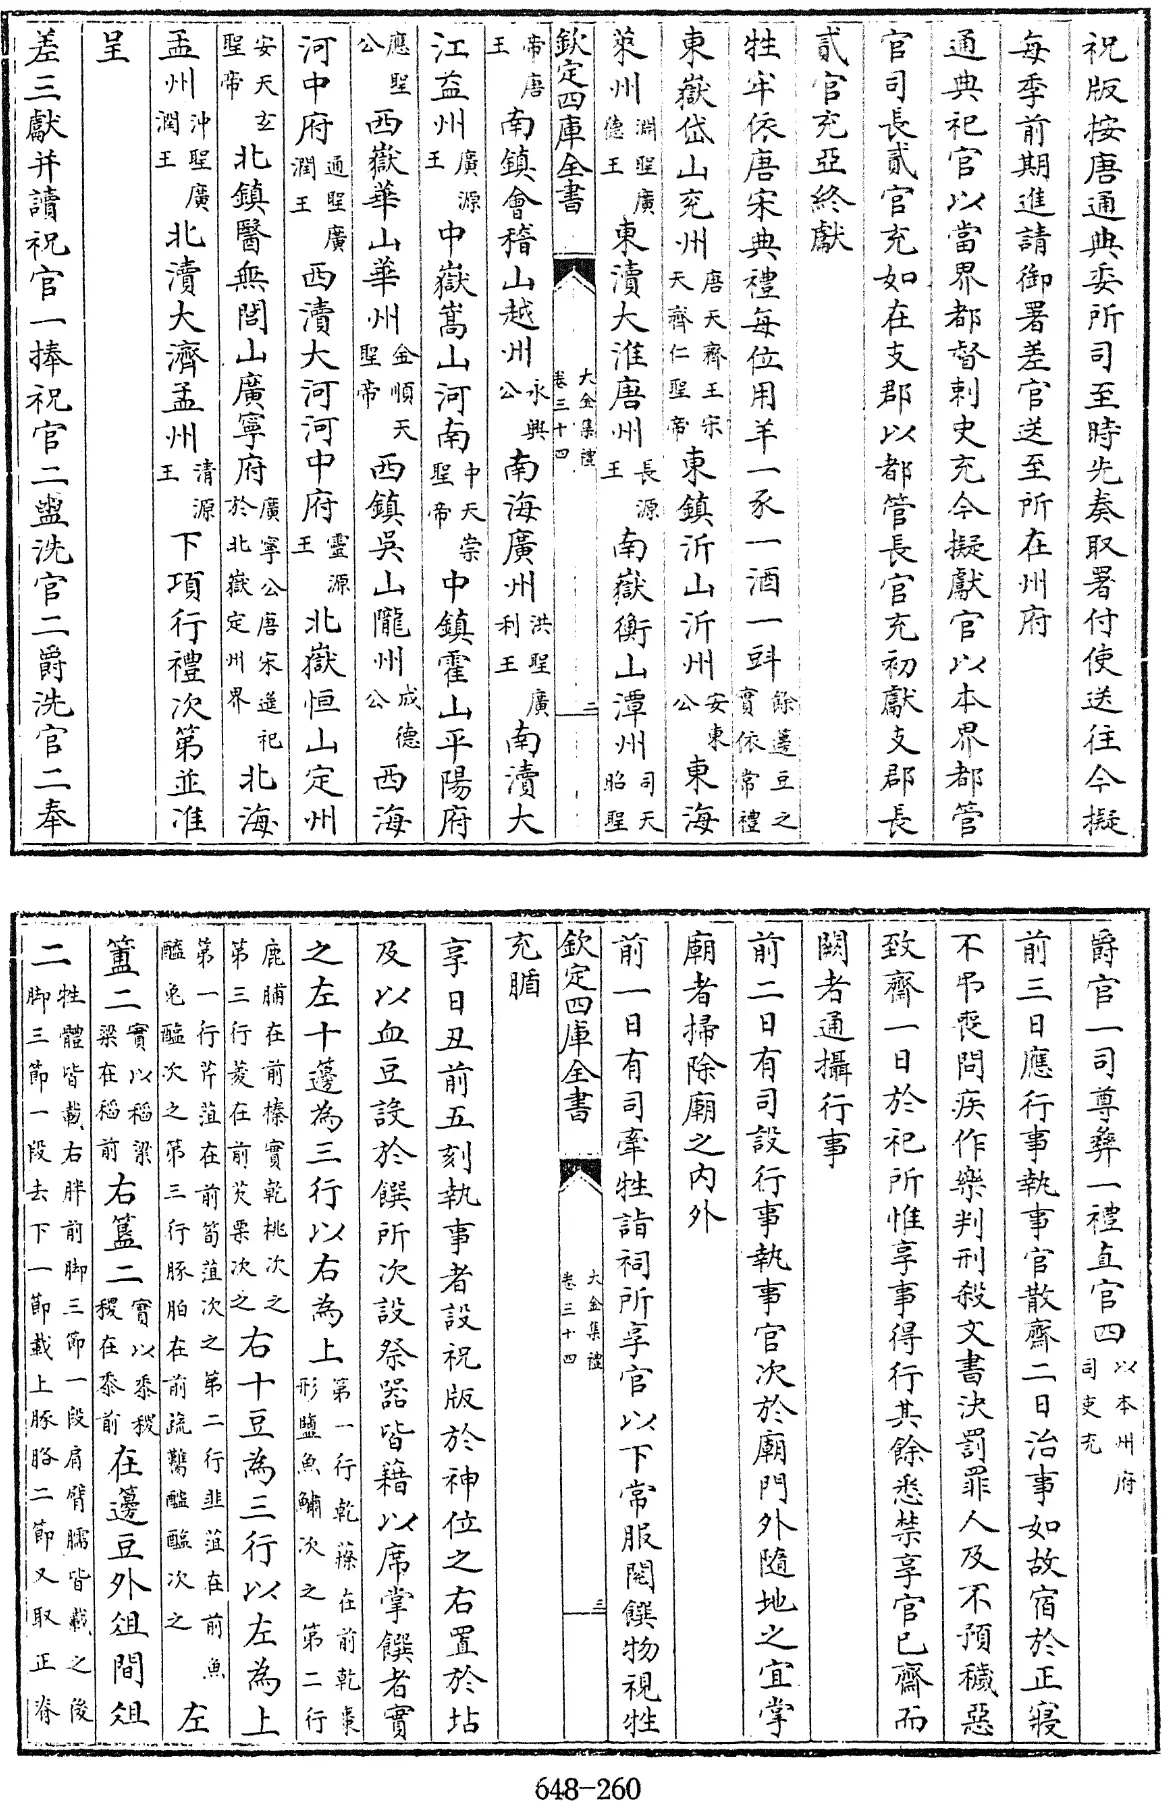 祝版按唐通典委所司至時先奏取署付使送往今擬
每季前期進請御署差官送至所在州府
通典祀官以當界都督刺史充今擬獻官以本界都管
官司長貳官充如在支郡以都管長官充初獻支郡長
貳官充亞終獻
牲牢依唐宋典禮每位用羊一豕一酒一㪷餘籩豆之實依常禮
東嶽岱山兖州唐天齊王宋天齊仁聖帝東鎮沂山沂州安東公東海
萊州淵聖廣德王東瀆大淮唐州長源王南嶽衡山潭州司天昭聖
欽定四庫全書 大金集禮卷三十四 二
帝唐王南鎮會稽山越州永興公南海廣州洪聖廣利王南瀆大
江益州廣源王中嶽嵩山河南中天崇聖帝中鎮霍山平陽府
應聖公西嶽華山華州金順天聖帝西鎮吳山隴州成德公西海
河中府通聖廣潤王西瀆大河河中府靈源王北嶽恒山定州
安天玄聖帝北鎮醫無閭山廣寧府廣寧公唐宋遥祀於北嶽定州界北海
孟州沖聖廣潤王北瀆大濟孟州清源王下項行禮次第並准
呈
差三獻并讀祝官一捧祝官二盥洗官二爵洗官二奉
爵官一司尊彝一禮直官四以本州府司吏充
前三日應行事執事官散齋二日治事如故宿於正寢
不弔喪問疾作樂判刑殺文書決罰罪人及不預穢惡
致齋一日於祀所惟享事得行其餘悉禁享官已齋而
闕者通攝行事
前二日有司設行事執事官次於廟門外隨地之宜掌
廟者掃除廟之內外
前一日有司牽牲詣祠所享官以下常服閱饌物視牲
欽定四庫全書 大金集禮卷三十四 三
充腯
享日丑前五刻執事者設祝版於神位之右置於坫
及以血豆設於饌所次設祭器皆藉以席掌饌者實
之左十籩為三行以右為上第一行乾䕩在前乾棗形鹽魚鱐次之第二行
鹿脯在前榛實乾桃次之第三行菱在前芡栗次之右十豆為三行以左為上
第一行芹菹在前筍菹次之第二行韭菹在前魚醢兔醢次之第三行豚胉在前疏鷖醢醓次之左
簠二實以稻粱粱在稻前右簋二實以黍稷稷在黍前在籩豆外俎間俎
二牲體皆載右胖前脚三節一段肩臂臑皆載之後脚三節一段去下一節載上豚胳二節又取正脊
648-260